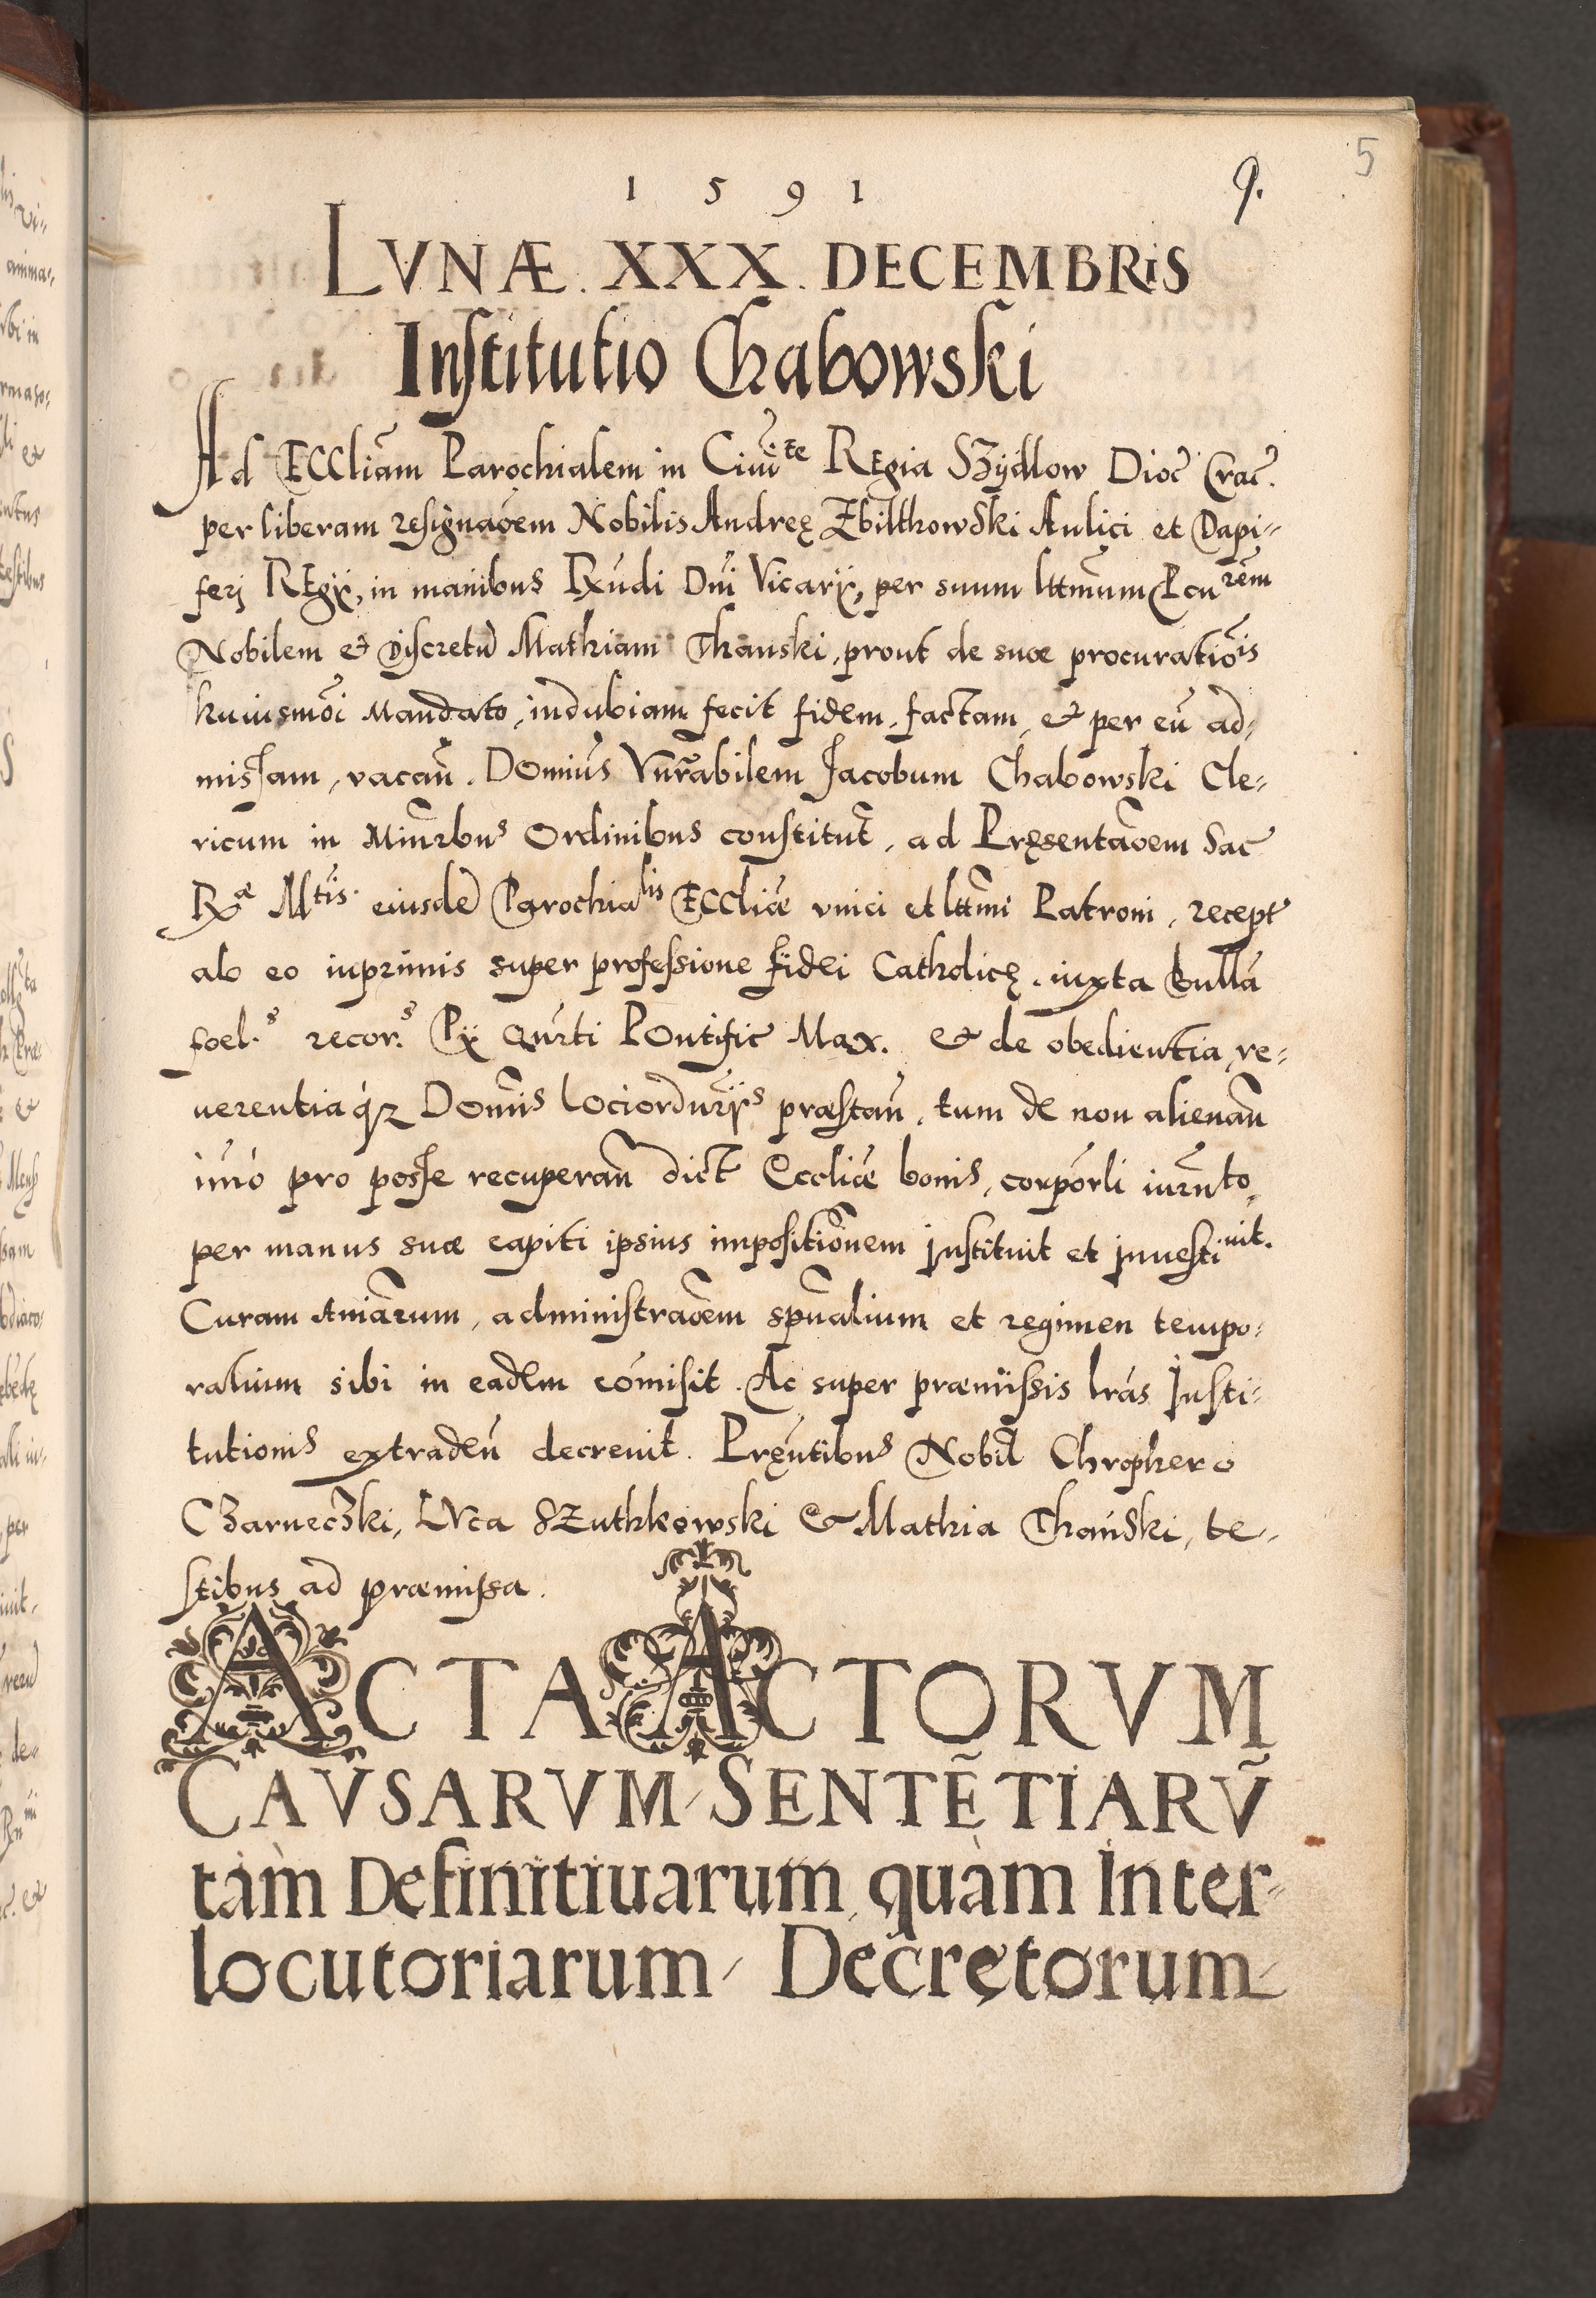 1591 9. 5
LVNÆ. XXX. DECEMBRiS
Institutio Chabowski
Ad ECCliam Parochialem in Ciuite REgia SZydlow Dioc Crac.
per liberam resignaõem Nobilis Andreę Zbilthowski Aulici et Dapi-
feri REgij, in manibus Rxndi Dni Vicarij, per suum lttmum Pcurem
Nobilem et Discretũ Mathiam Thanski, prout de suæ procuratiois
huiusmõi Mandato, indubiam fecit fidem, factam, et per eũ ad-
missam, vacañ. Domius Vnrabilem Jacobum Chabowski Cle-
ricum in Minrbus Ordinibus constitut, ad Pręsentaõem Sac
Rxæ Mtis. eiusdẽ Parochialis ECCliæ vnici et lttmi Patroni, recept
ab eo inprimis super professione fidei Catholicę, iuxta bullã
foel.s recor.s Pij Qurti Pontific Max. et de obedientia, re-
uerentia qz Domis lociordurijs præstañ, tum de non alienañ
imò pro posse recuperañ dict Eccliæ bonis, corporli iurnto,
per manus suæ capiti ipsius impositionem instituit et inuestiuit.
Curam Aniarum, administraõem spualium et regimen tempo-
ralium sibi in eadem cõmisit. Ac super præmissis lras Insti-
tutionis extradeñ decreuit. Pręntibus Nobil Chrophero
CZarnecZki, LVca SZuthkowski et Mathia Thanski, te-
stibus ad præmissa.
ACTA ACTORVM
CAVSARVM, SENTẼTIARṼ
tàm Definitiuarum, quàm Inter-
locutoriarum, Decretorum,